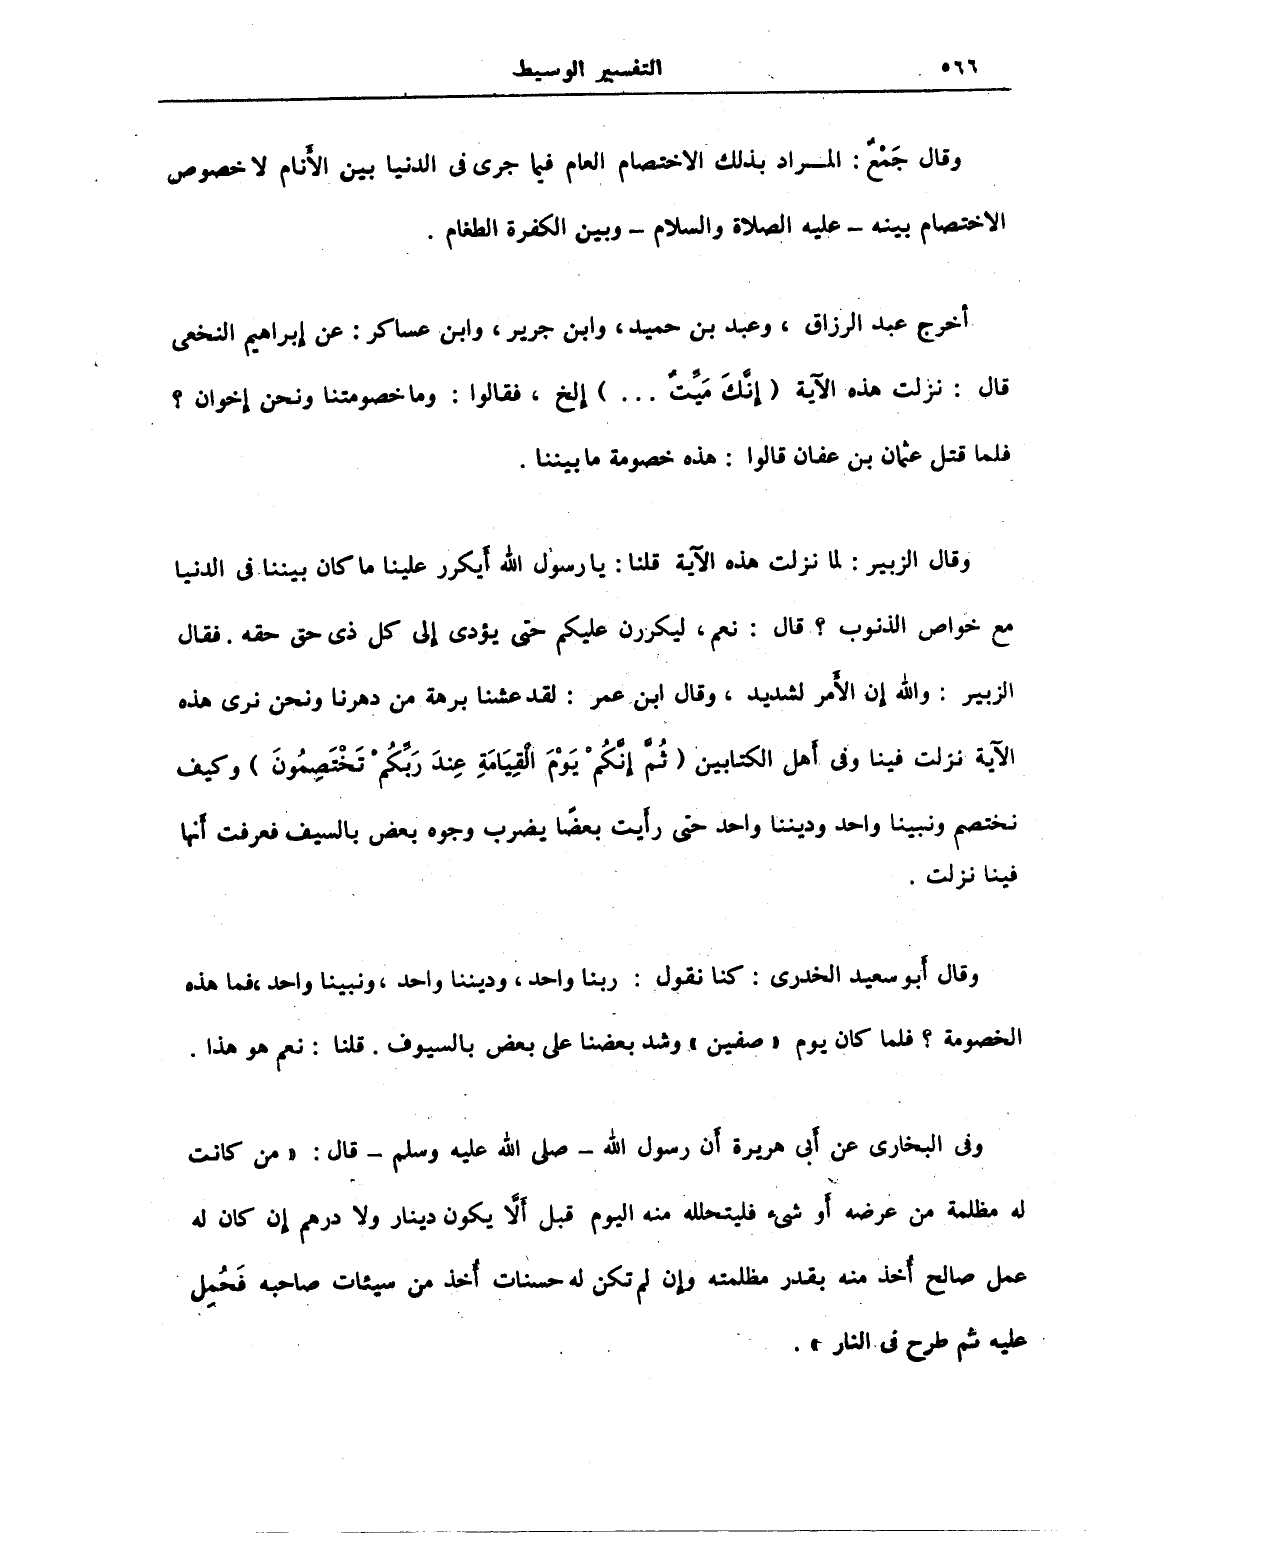 ٥٦٦ التفسير الوسيط
وقال جَمْعٌ : المــراد بذلك الاختصام العام فيما جرى فى الدنيا بين الأَنام لا خصوص
الاختصام بينه – عليه الصلاة والسلام – وبين الكفرة الطغام .
أخرج عبد الرزاق ، وعبد بن حميد، وابن جرير، وابن عساكر : عن إبراهيم النخعى
قال : نزلت هذه الآية ( إِنَّكَ مَيِّتٌ ... ) إلخ ، فقالوا : وما خصومتنا ونحن إخوان ؟
فلما قتل عثمان بن عفان قالوا : هذه خصومة ما بيننا .
وقال الزبير : لما نزلت هذه الآية قلنا : يا رسول الله أَيكرر علينا ما كان بيننا فى الدنيا
مع خواص الذنوب ؟ قال : نعم ، ليكررن عليكم حتى يؤدى إلى كل ذى حق حقه . فقال
الزبير : والله إن الأَمر لشديد ، وقال ابن عمر : لقد عشنا برهة من دهرنا ونحن نرى هذه
الآية نزلت فينا وفى أَهل الكتابين ( ثُمَّ إِنَّكُمْ يَوْمَ الْقِيَامَةِ عِندَ رَبِّكُمْ تَخْتَصِمُونَ ) وكيف
نختصم ونبينا واحد وديننا واحد حتى رأَيت بعضًا يضرب وجوه بعض بالسيف فعرفت أَنها
فينا نزلت .
وقال أَبو سعيد الخدرى : كنا نقول : ربنا واحد ، وديننا واحد ، ونبينا واحد ، فما هذه
الخصومة ؟ فلما كان يوم « صفين » وشد بعضنا على بعض بالسيوف . قلنا : نعم هو هذا .
وفى البخارى عن أَبى هريرة أَن رسول الله – صلى الله عليه وسلم – قال : « من كانت
له مظلمة من عرضه أَو شىء فليتحلله منه اليوم قبل أَلَّا يكون دينار ولا درهم إن كان له
عمل صالح أُخذ منه بقدر مظلمته وإن لم تكن له حسنات أُخذ من سيئات صاحبه فَحُمِل
عليه ثم طرح فى النار » .